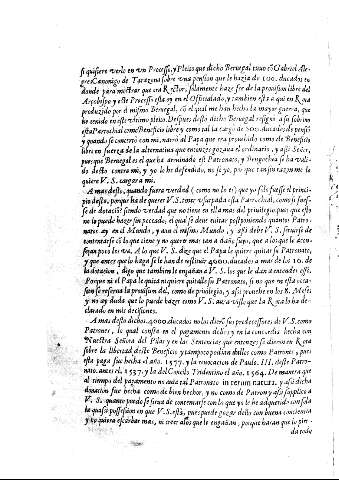 si quisiere verlo en un Processo, y Pleito que dicho Berengal truxo cõ Gabriel Ale-
gre Canonigo de Taraçona sobre una pension que le hazia de 100. ducados en
donde para mostrar que era Rector, solamente haze fee de la provision libre del
Arçobispo y este Processo esta oy en el Officialado, y tambien esta aqui en Roma
produzido por el mismo Berengal, cõ el qual me han hecho la mayor guerra, que
he tenido en este ultimo pleito. Despues desto dicho Berengal resigno a su sobrino
esta Parrochial como Beneficio libre y como tal la cargo de 300. ducados de pensiõ
y quando se concerto con mi, narrò al Papa que era proulado como de Beneficio
libre en fuerza de la alternativa que entonçes gozava el ordinario, y assi Señor,
porque Berengal es el que ha arruinado est Patronato, y Bengochea se ha vali-
do desto contra mi, y yo le he defendido, no se yo, por que con juyzazõn me lo
quiere V. S. cargar a mi.
A mas desto, quando fuera verdad (como no lo es) que yo solo fuesse el princi-
pio desta, porque ha de querer V. S. tener usurpada esta Parrochial, como si fues-
se de dotaciõ siendo verdad que no tiene en ella mas del privilegio, por que esto
no lo puede hazer sin peccado; el qual se deve evitar possidiendo quantos Patro-
natos ay en el Mundo, y aun el mismo Mundo, y assi deve V. S. servirse de
contentarse cõ lo que tiene y no querer mas tan a daño suyo, que a los que le acon-
sejan poco les va. A lo que V. S. dize que el Papa le quiere quitar su Patronato,
y que antes que lo haga se le han de restituir 4000. ducados a mas de los 10. de
la dotacion, digo que tambien le engañan a V. S. los que le dan a entender esto.
Porque ni el Papa le quita ni quiere quitalle su Patronato, si no que en esta oca-
sion se reforma la provision del, como de privilegio, y assi provehe en los 8. Meses
y no ay duda que lo puede hazer como V. S. vera visto que la Rota lo ha de-
clarado en mis decisiones.
A mas desto dichos 4000. ducados no los dierõ sus predecessores de V. S. como
Patrones, lo qual consta en el pagamento dellos y en la concordia hecha con
Nuestra Señora del Pilar y en las Sentencias que entonzes se dieron en Rota
sobre la libertad deste Beneficio y tampoco podian dallos como Patrones, pues
esta paga fue hecha el año. 1577. y la revocacion de Paulo. III. deste Patro-
nato. antes el. 1537. y la del Concilio Tridentino el año. 1564. De manera que
al tiempo del pagamento no avia tal Patronato in rerum natura, y assi dicha
donacion fue hecha como de bien hechor, y no como de Patron y assi supplico a
V. S. quanto puedo se sirva de contentarse con lo que yo le he adquirido con sola
la quasi possession en que V. S. està, pues puede gozar dello con buena conciencia
y no quiera escarbar mas, ni creer a los que le engañan, porque haràn que lo pier-
da todo